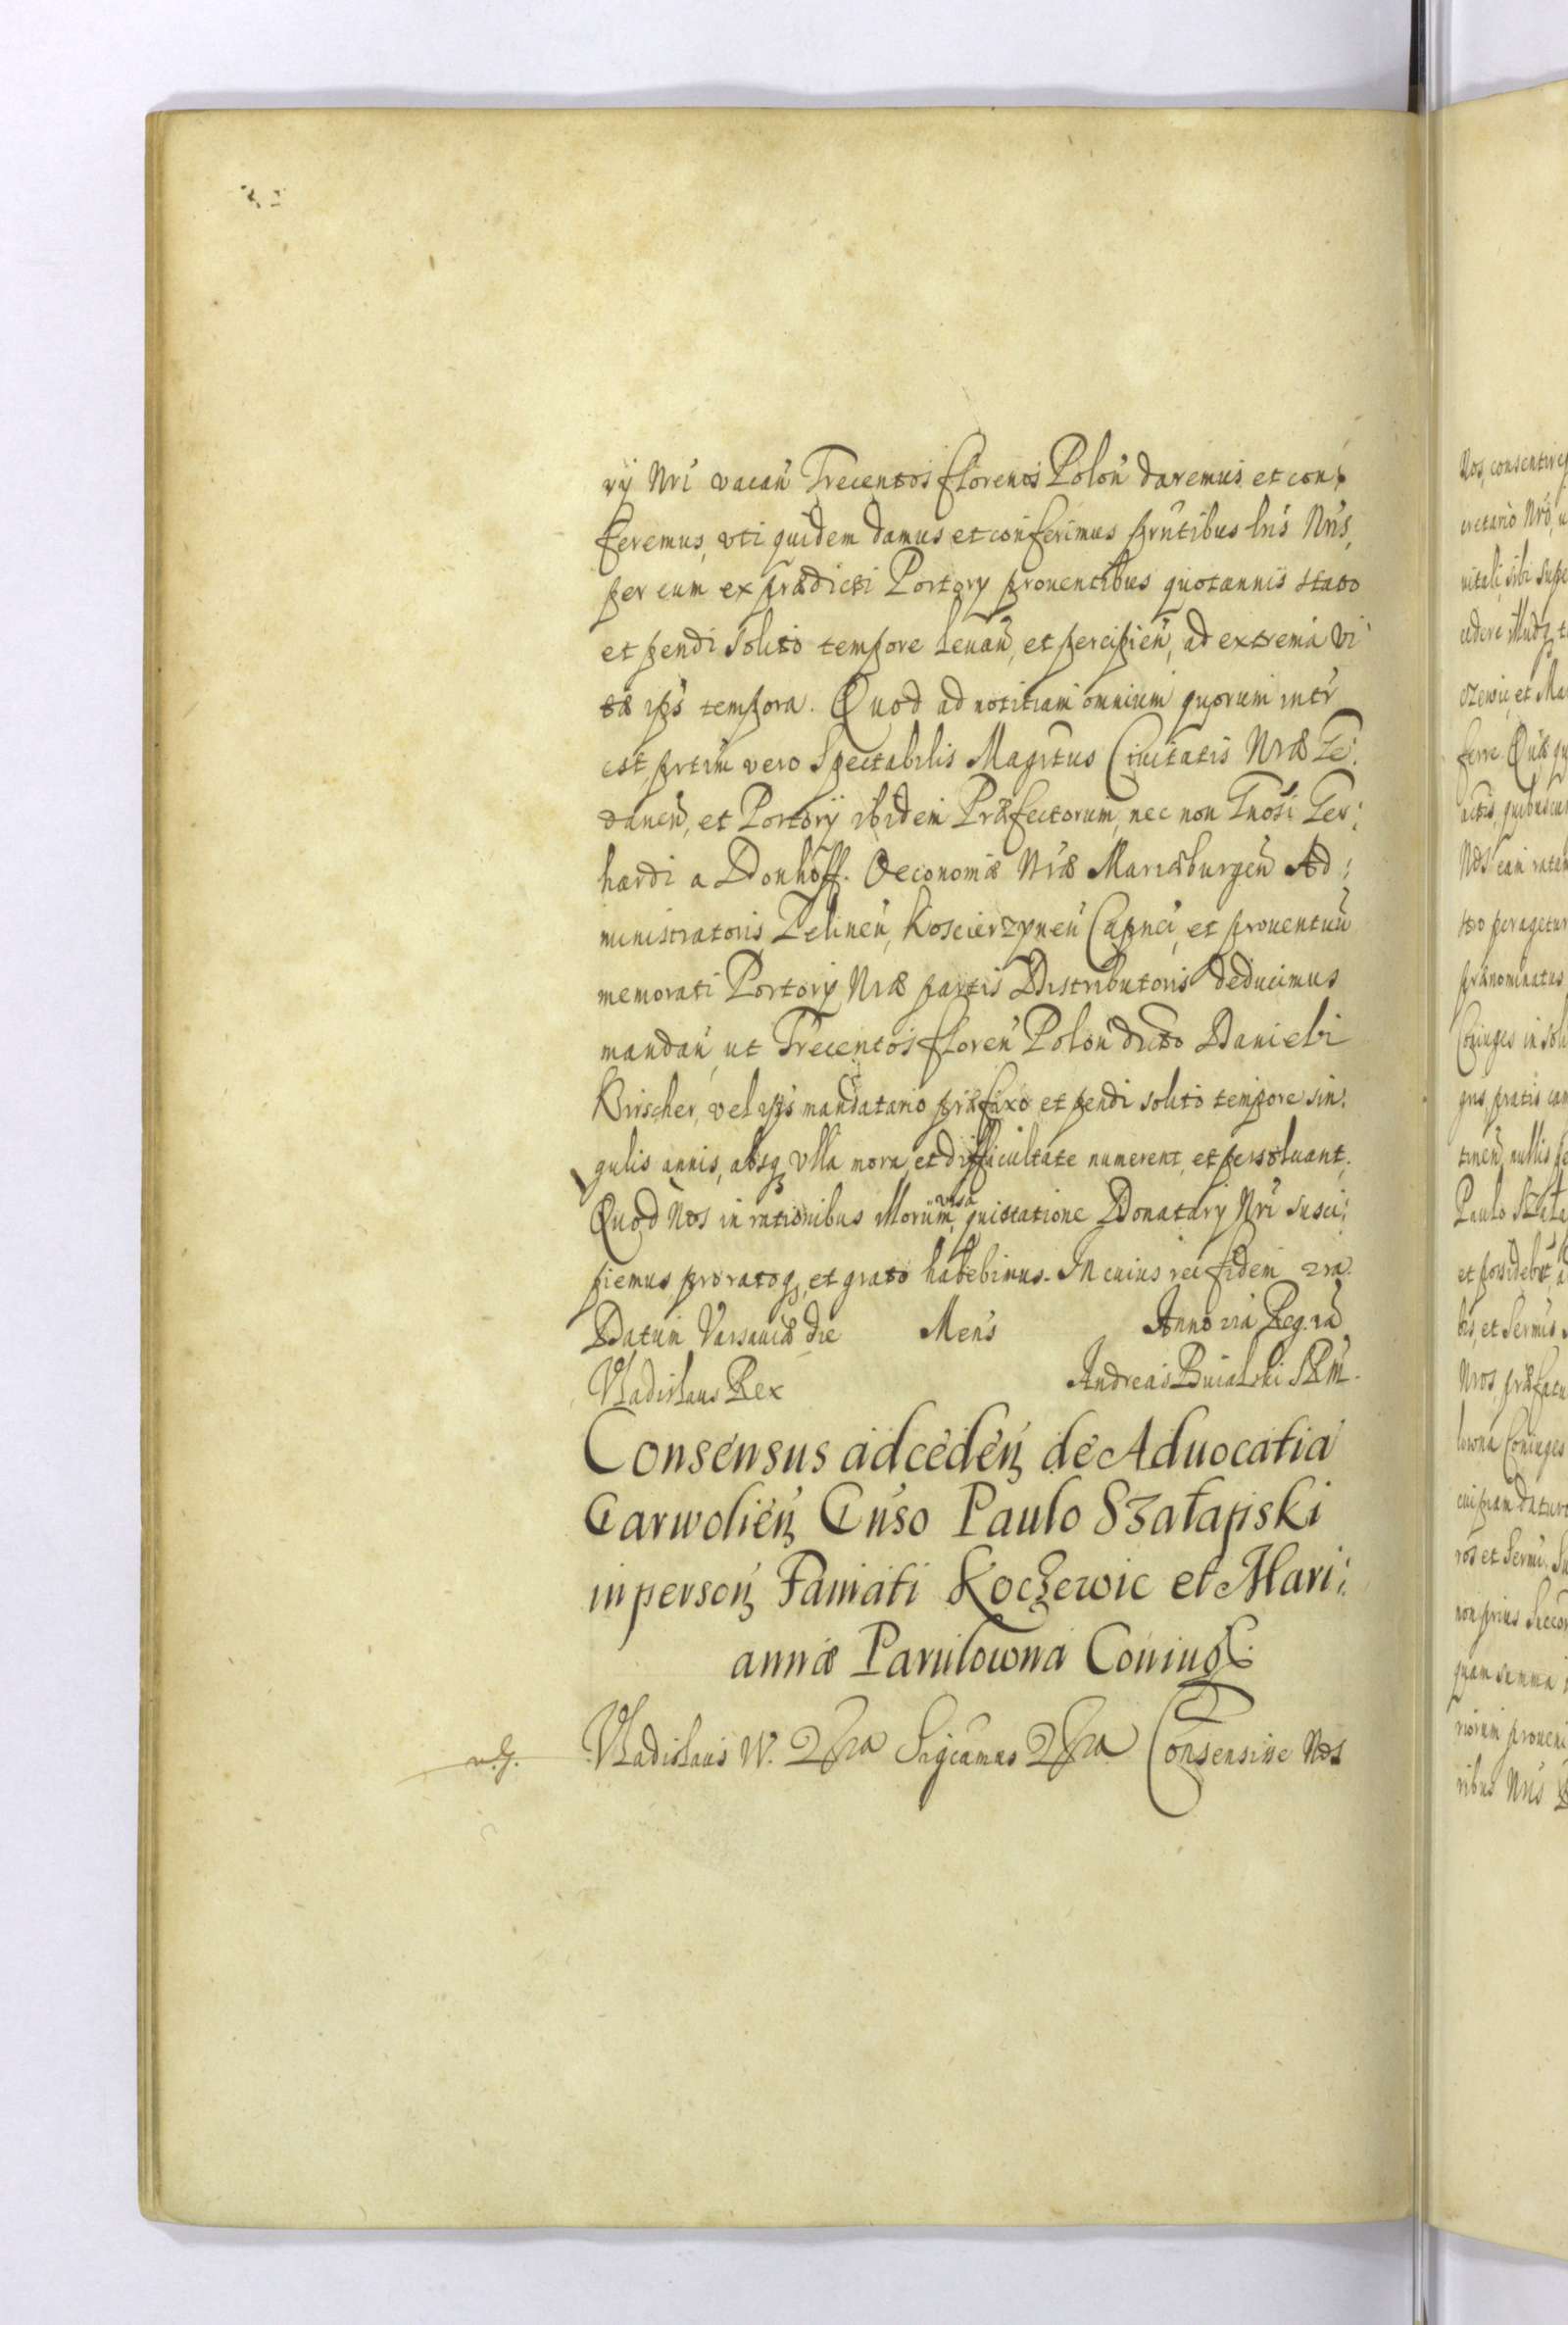 ryi Nri vacan Trecentos florenos Polon daremus et con:
feremus, vti quidem damus et conferimus pñtibus lris Nris,
per eum ex prædicti Portory prouentibus quotannis stato
et pendi solito tempore leuan, et percipien, ad extrema vi
tæ ips tempora. Quod ad notitiam omnium quorum intr
est prtim vero Spectabilis Magrtus Ciuitatis Nræ Ge:
danen, et Portorÿ ibidem Præfectorum, nec non Gnosi Ger:
hardi a Donhoff. Oeconomiæ Nræ Mariæburgen Ad:
ministratoris, Zelinen, Koscierzynen Capnei, et prouentuu
memorati Portorÿ Nræ partis Distributoris deducimus
mandan, ut Trecentos floren Polon dicto Danieli
Krischer, vel ips mandatario præfixo et pendi solito tempore sin:
gulis annis, absq vlla mora, et difficultate numerent, et persoluant.
Quod Nos in rationibus illorum, visa quietatione Donatarÿ Nri susci:
piemus pro ratoq, et grato habebimus. In cuius rei fidem 2ra.
Datum Varsauiæ die Mens Anno 2ra Reg. 2ra
Vladislaus Rex Andreas Buialski SRM.
Consensus adceden de Aduocatia
Garwolien Gnso Paulo Szałapski
in person Famati Koczewic et Mari:
annæ Pawilowna Coniug.
Vladislaus IV. 2ra Sigcamus 2ra Consensisse Nos
Nos, consentire
cretario Nro, u
uitali, sibi supe
cedere illudq t
ozewic, et Ma
ferre. Quæ qu
actis, quibuscu
Nos eam ratam
tto peragetur
prænominatus
Coniuges in soli
gris pratis cam
tinen, nullis
Paulo Szała
et possidebit, a
bis, et Sermis
Nros, præfatu
lowna Coniuges
cuipiam datur
ros et Sermi. Su
non prius Succe
quam summa
riorum proueni
ribus Nris